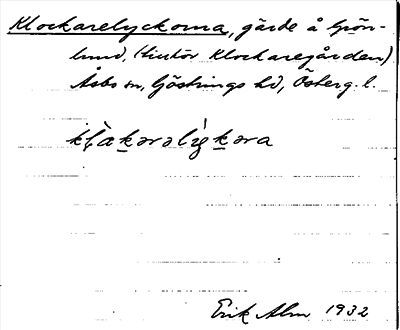 Klockarelyckorna, gärde å Grön-
lund, (hintör Klockaregården)
Åsbo sn, Göstrings hd, Österg. l.
Erik Alm 1932